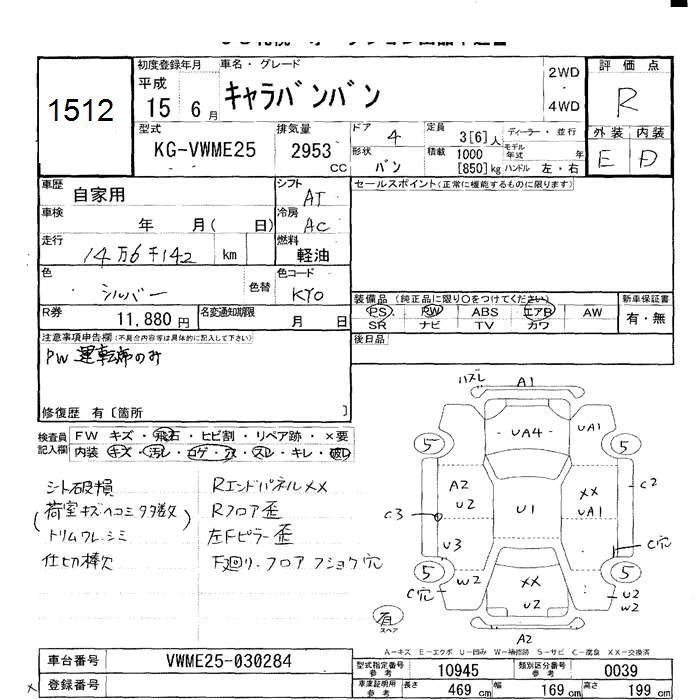 1512
初度登録年月
平成
15 6月
車名・グレード
キャラバンバン
2WD
・
4WD
評価点
R
外装 内装
E D
型式
KG-VWME25
排気量
2953
CC
ドア
4
形状
バン
定員
3[6]人
積載
1000
[850]kg
ディーラー・並行
モデル年式 年
ハンドル 左・右
車歴
自家用
シフト
AT
車検
年 月( 日)
冷房
AC
走行
14万6千142 km
燃料
軽油
色
シルバー
色替
色コード
KY0
R券
11,880円
名変通知期限
月 日
セールスポイント(正常に機能するものに限ります)
装備品(純正品に限り○をつけてください)
PS PW ABS エアB AW
SR ナビ TV カワ
新車保証書
有・無
後日品
注意事項申告欄(不具合内容等は具体的に記入して下さい)
PW 運転席のみ
修復歴 有〔箇所 〕
検査員
記入欄
FW キズ・飛石・ヒビ割・リペア跡・×要
内装 キズ・汚レ・コゲ・穴・スレ・キレ・破レ
シート破損
(荷室キズヘコミ多数)
トリムワレ.シミ
仕切棒欠
Rエンドパネル××
Rフロア歪
左Fピラー歪
F廻り.フロア フショク穴
ハズレ
A1
5
UA4
UA1
5
A2
U2
U1
××
UA1
C2
C3
U3
C穴
5
W2
C穴
××
U2
5
U2
W2
A2
有
スペア
A-キズ E-エクボ U-凹み W-補修跡 S-サビ C-腐食 ××-交換済
車台番号
VWME25-030284
登録番号
型式指定番号
参考
10945
類別区分番号
参考
0039
車庫証明用
参考
長さ
469 cm
幅
169 cm
高さ
199 cm